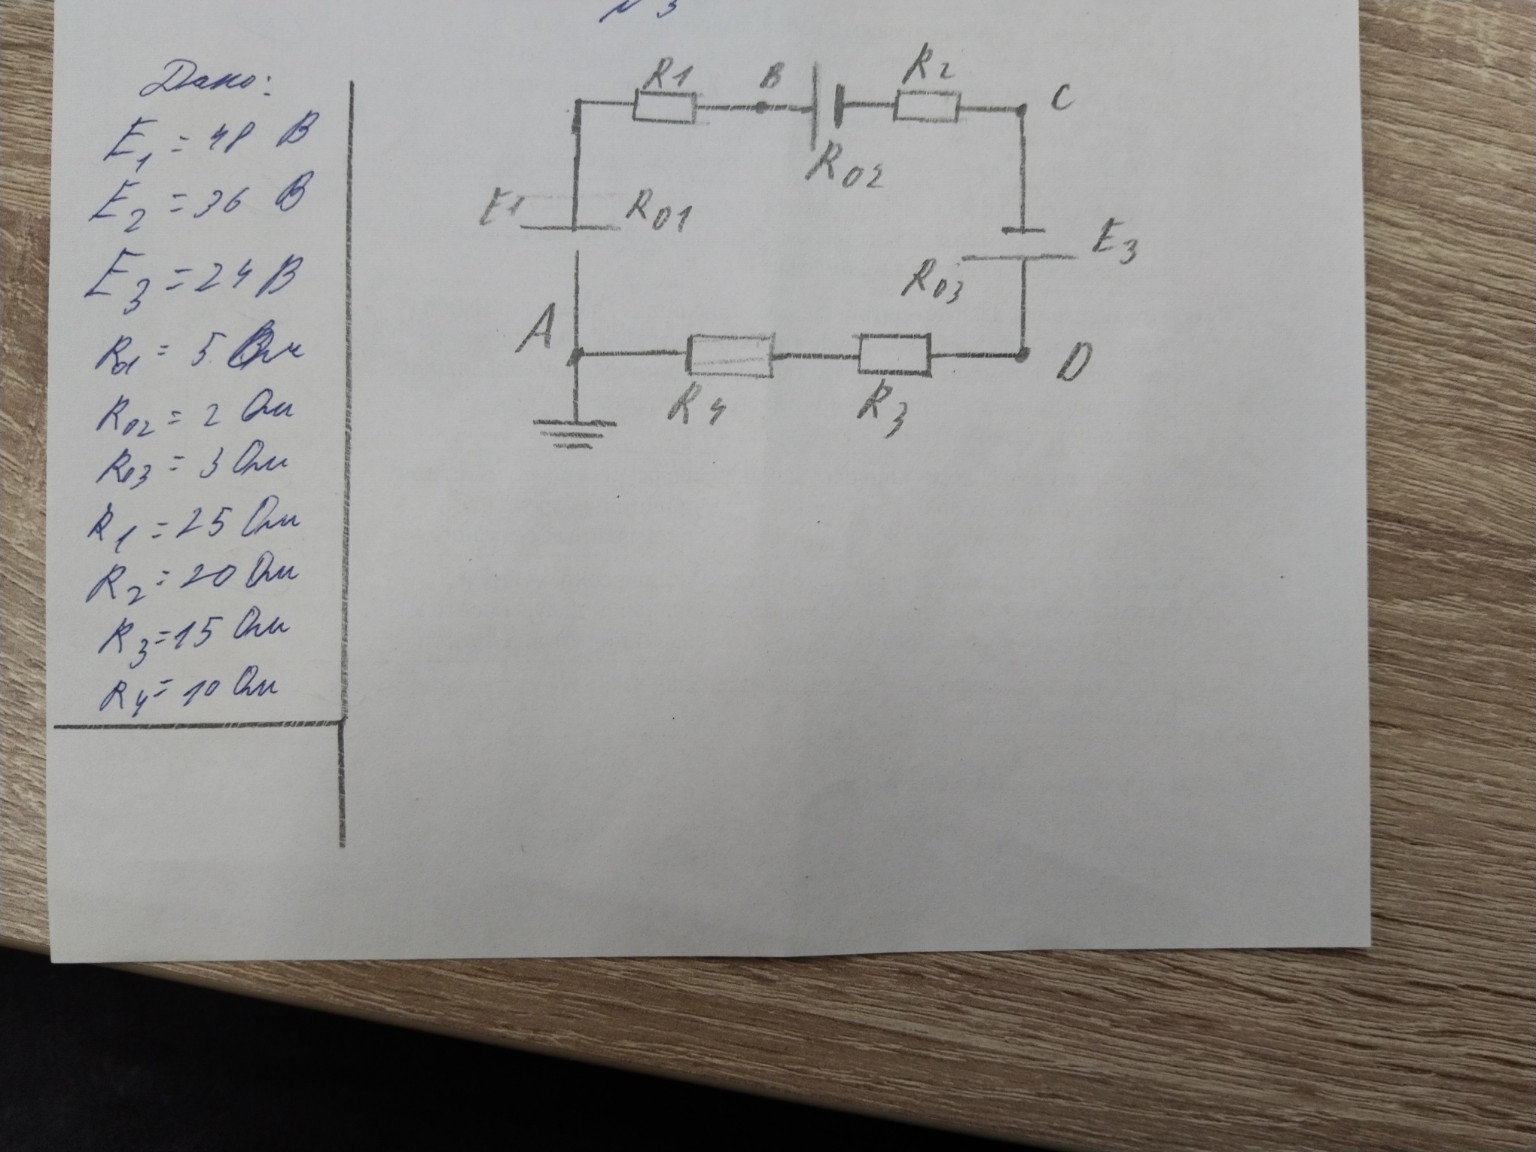 N3
Дано:
E1 = 48 В
E2 = 36 В
E3 = 24 В
R01 = 5 Ом
R02 = 2 Ом
R03 = 3 Ом
R1 = 25 Ом
R2 = 20 Ом
R3 = 15 Ом
R4 = 10 Ом
R1 B R2 C
R02
E1 R01
E3
R03
A
D
R4 R3